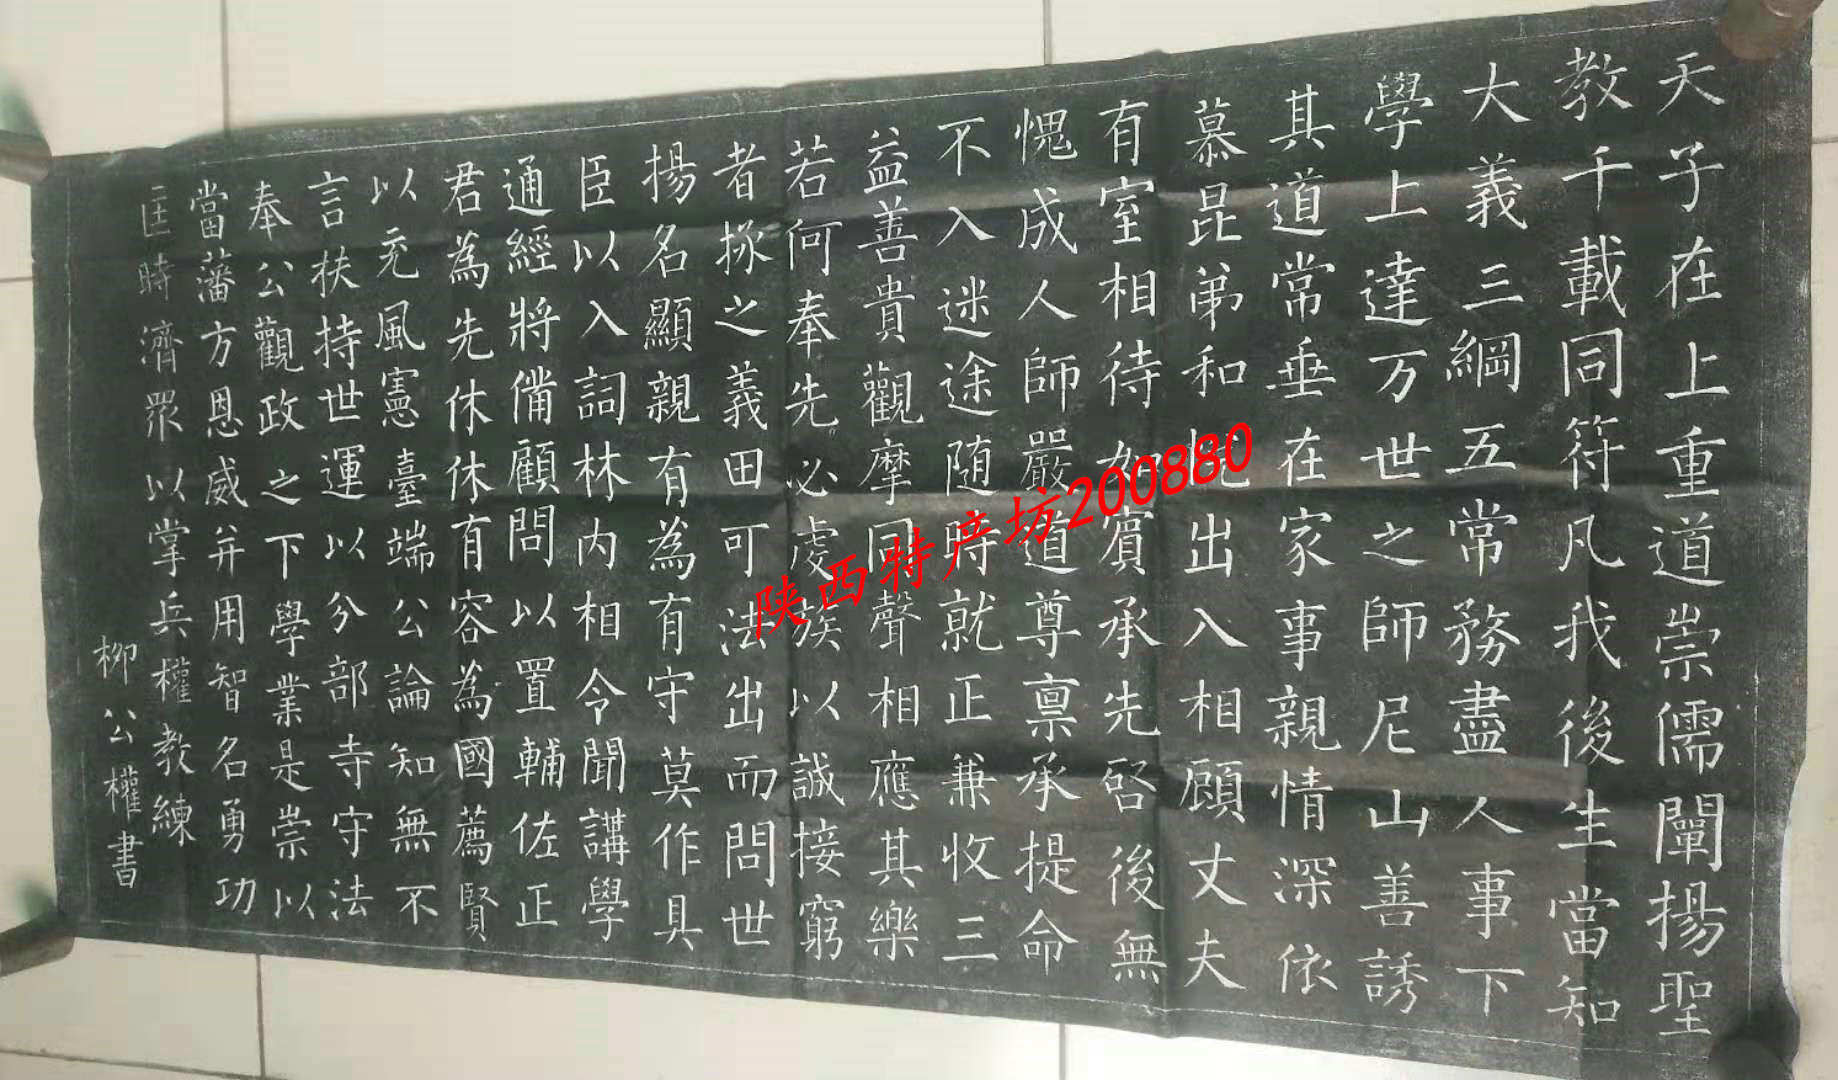 天子在上重道崇儒闡揚聖
教千載同符凡我後生當知
大義三綱五常務盡人事下
學上達万世之師尼山善誘
其道常垂在家事親情深依
慕昆弟和悅出入相顧丈夫
有室相待如賓承先啓後無
愧成人師嚴道尊禀承提命
不入迷途随時就正兼收三
益善貴觀摩同聲相應其樂
若何奉先必虔族以誠接窮
者拯之義田可法出而問世
揚名顯親有為有守莫作具
臣以入詞林内相令聞講學
通經將備顧問以置輔佐正
君為先休休有容為國薦賢
以充風憲臺端公論知無不
言扶持世運以分部寺守法
奉公觀政之下學業是崇以
當藩方恩威并用智名勇功
匡時濟眾以掌兵權教練
柳公權書
陕西特产坊200880